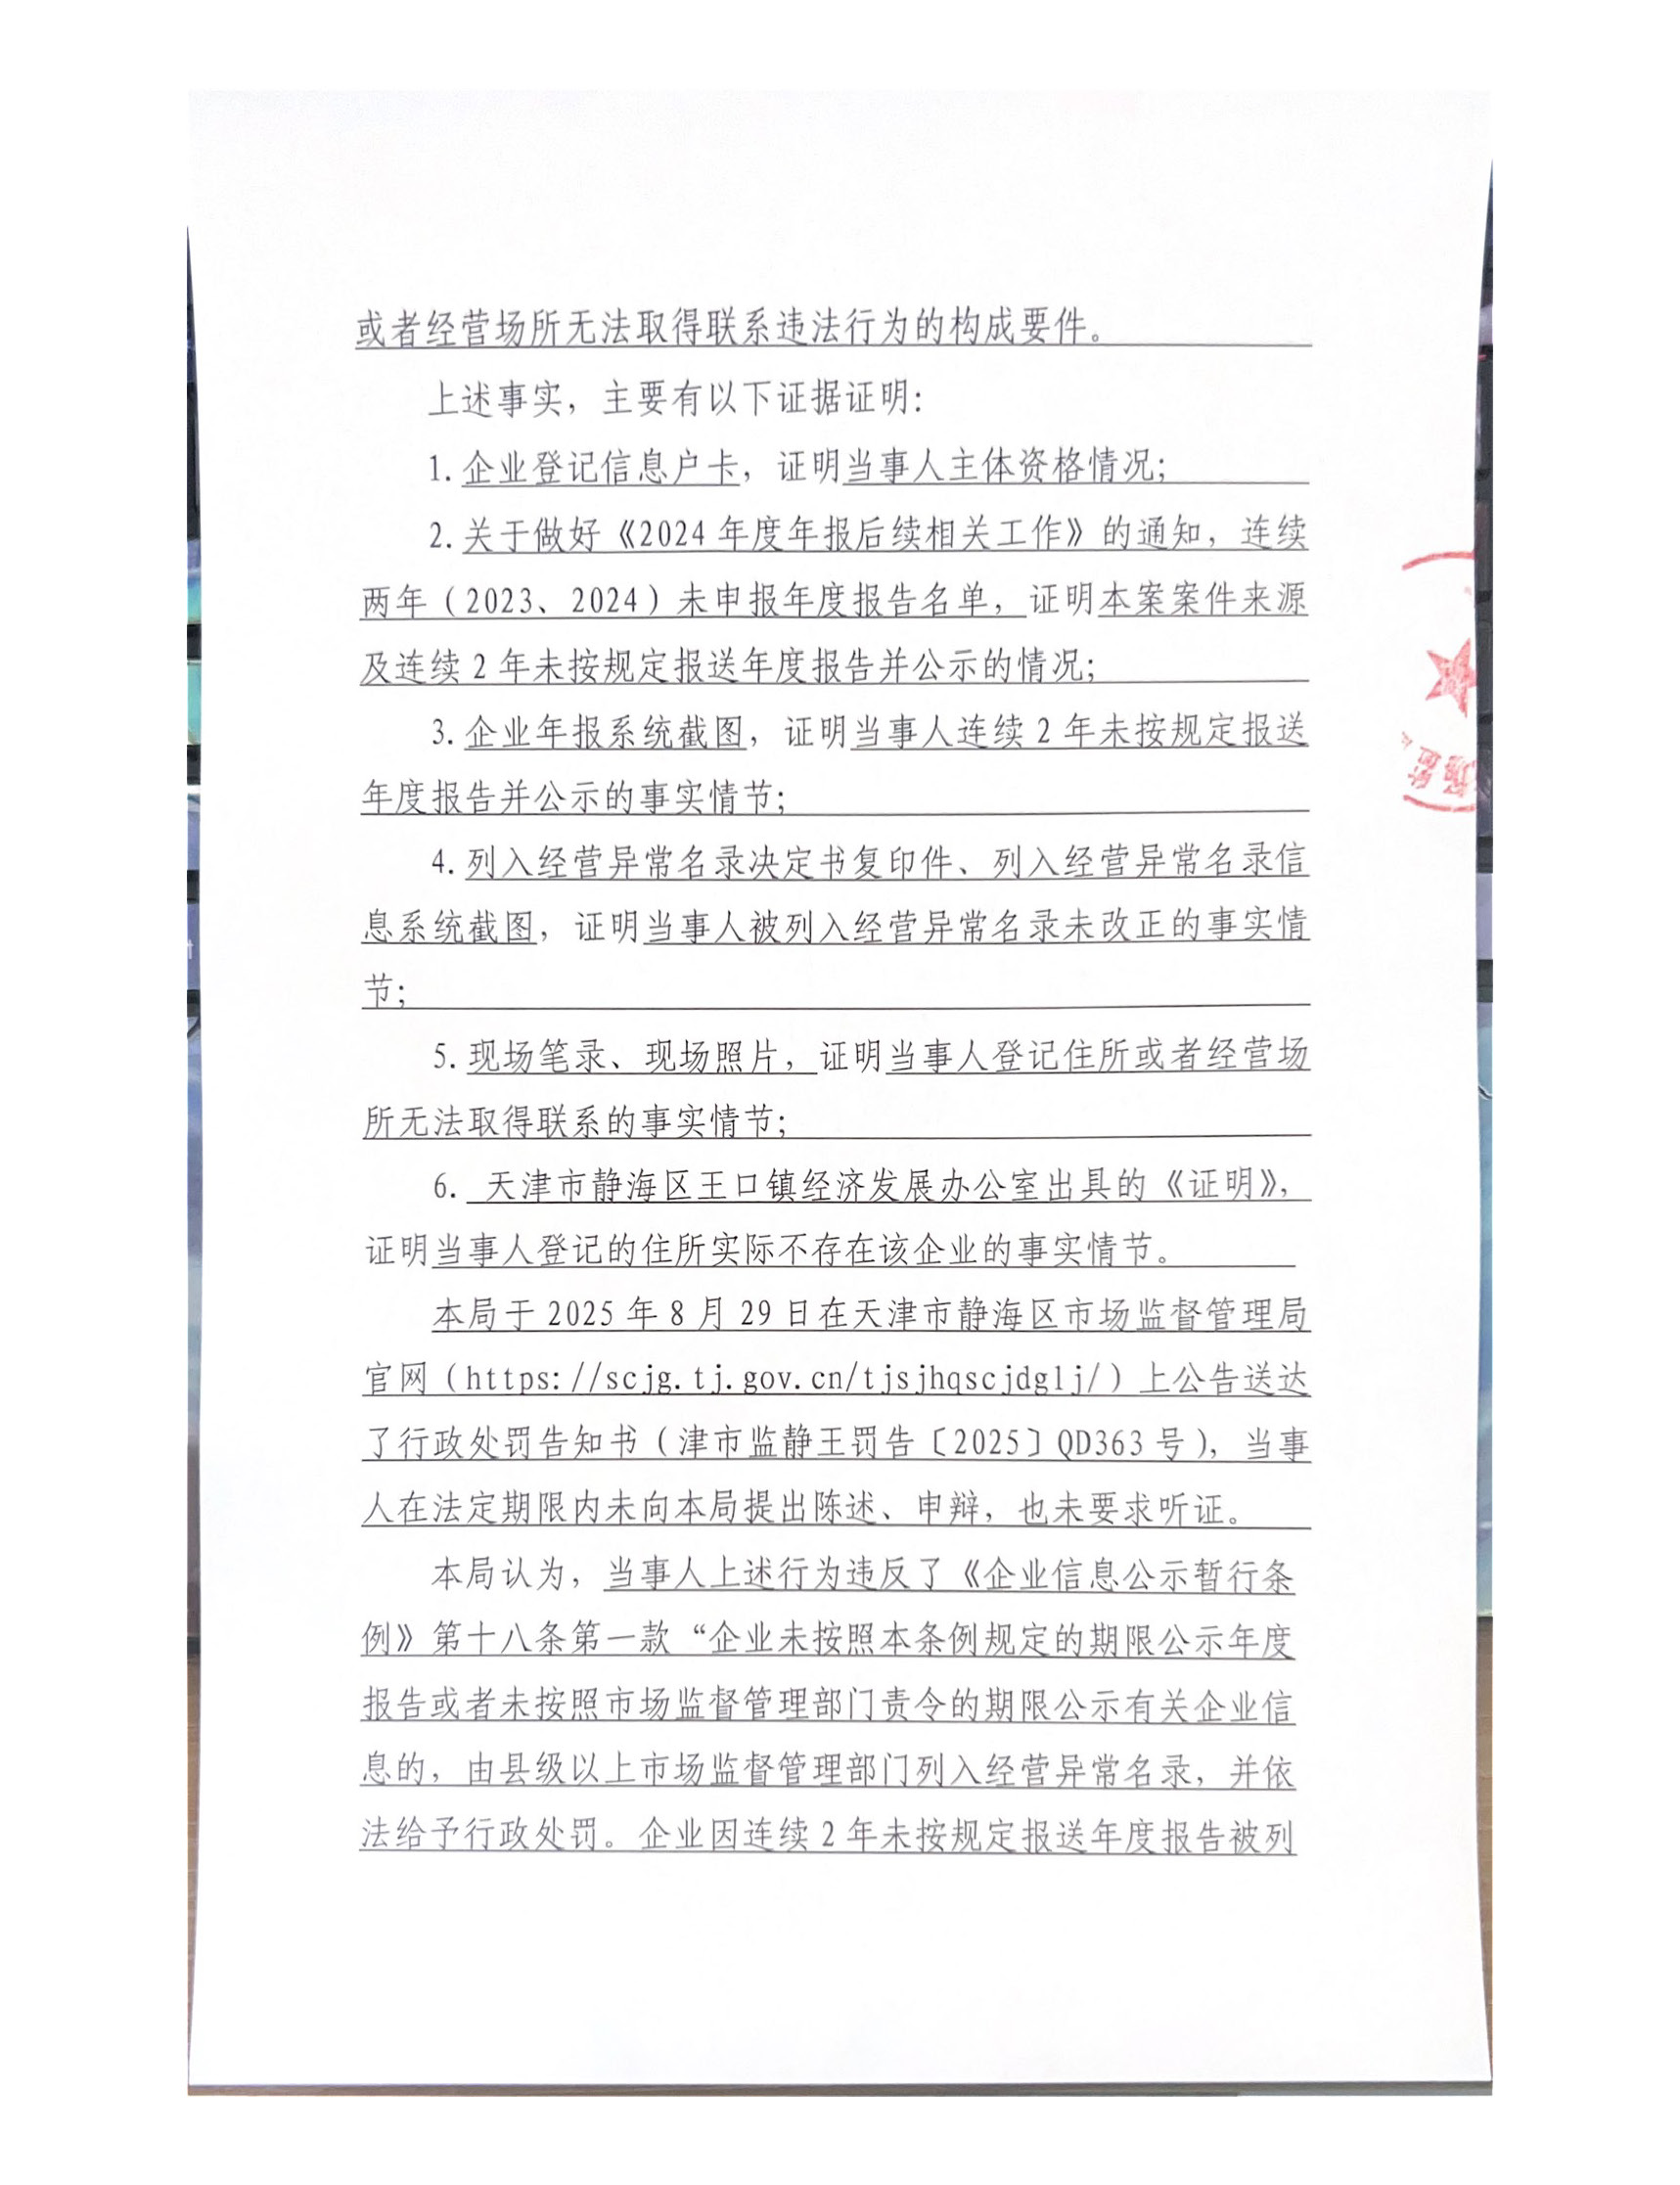 或者经营场所无法取得联系违法行为的构成要件。
上述事实，主要有以下证据证明：
1. 企业登记信息户卡，证明当事人主体资格情况；
2. 关于做好《2024 年度年报后续相关工作》的通知，连续
两年（2023、2024）未申报年度报告名单，证明本案案件来源
及连续 2 年未按规定报送年度报告并公示的情况；
3. 企业年报系统截图，证明当事人连续 2 年未按规定报送
年度报告并公示的事实情节；
4. 列入经营异常名录决定书复印件、列入经营异常名录信
息系统截图，证明当事人被列入经营异常名录未改正的事实情
节；
5. 现场笔录、现场照片，证明当事人登记住所或者经营场
所无法取得联系的事实情节；
6. 天津市静海区王口镇经济发展办公室出具的《证明》，
证明当事人登记的住所实际不存在该企业的事实情节。
本局于 2025 年 8 月 29 日在天津市静海区市场监督管理局
官网（https://scjg.tj.gov.cn/tjsjhqscjdglj/）上公告送达
了行政处罚告知书（津市监静王罚告〔2025〕QD363 号），当事
人在法定期限内未向本局提出陈述、申辩，也未要求听证。
本局认为，当事人上述行为违反了《企业信息公示暂行条
例》第十八条第一款“企业未按照本条例规定的期限公示年度
报告或者未按照市场监督管理部门责令的期限公示有关企业信
息的，由县级以上市场监督管理部门列入经营异常名录，并依
法给予行政处罚。企业因连续 2 年未按规定报送年度报告被列